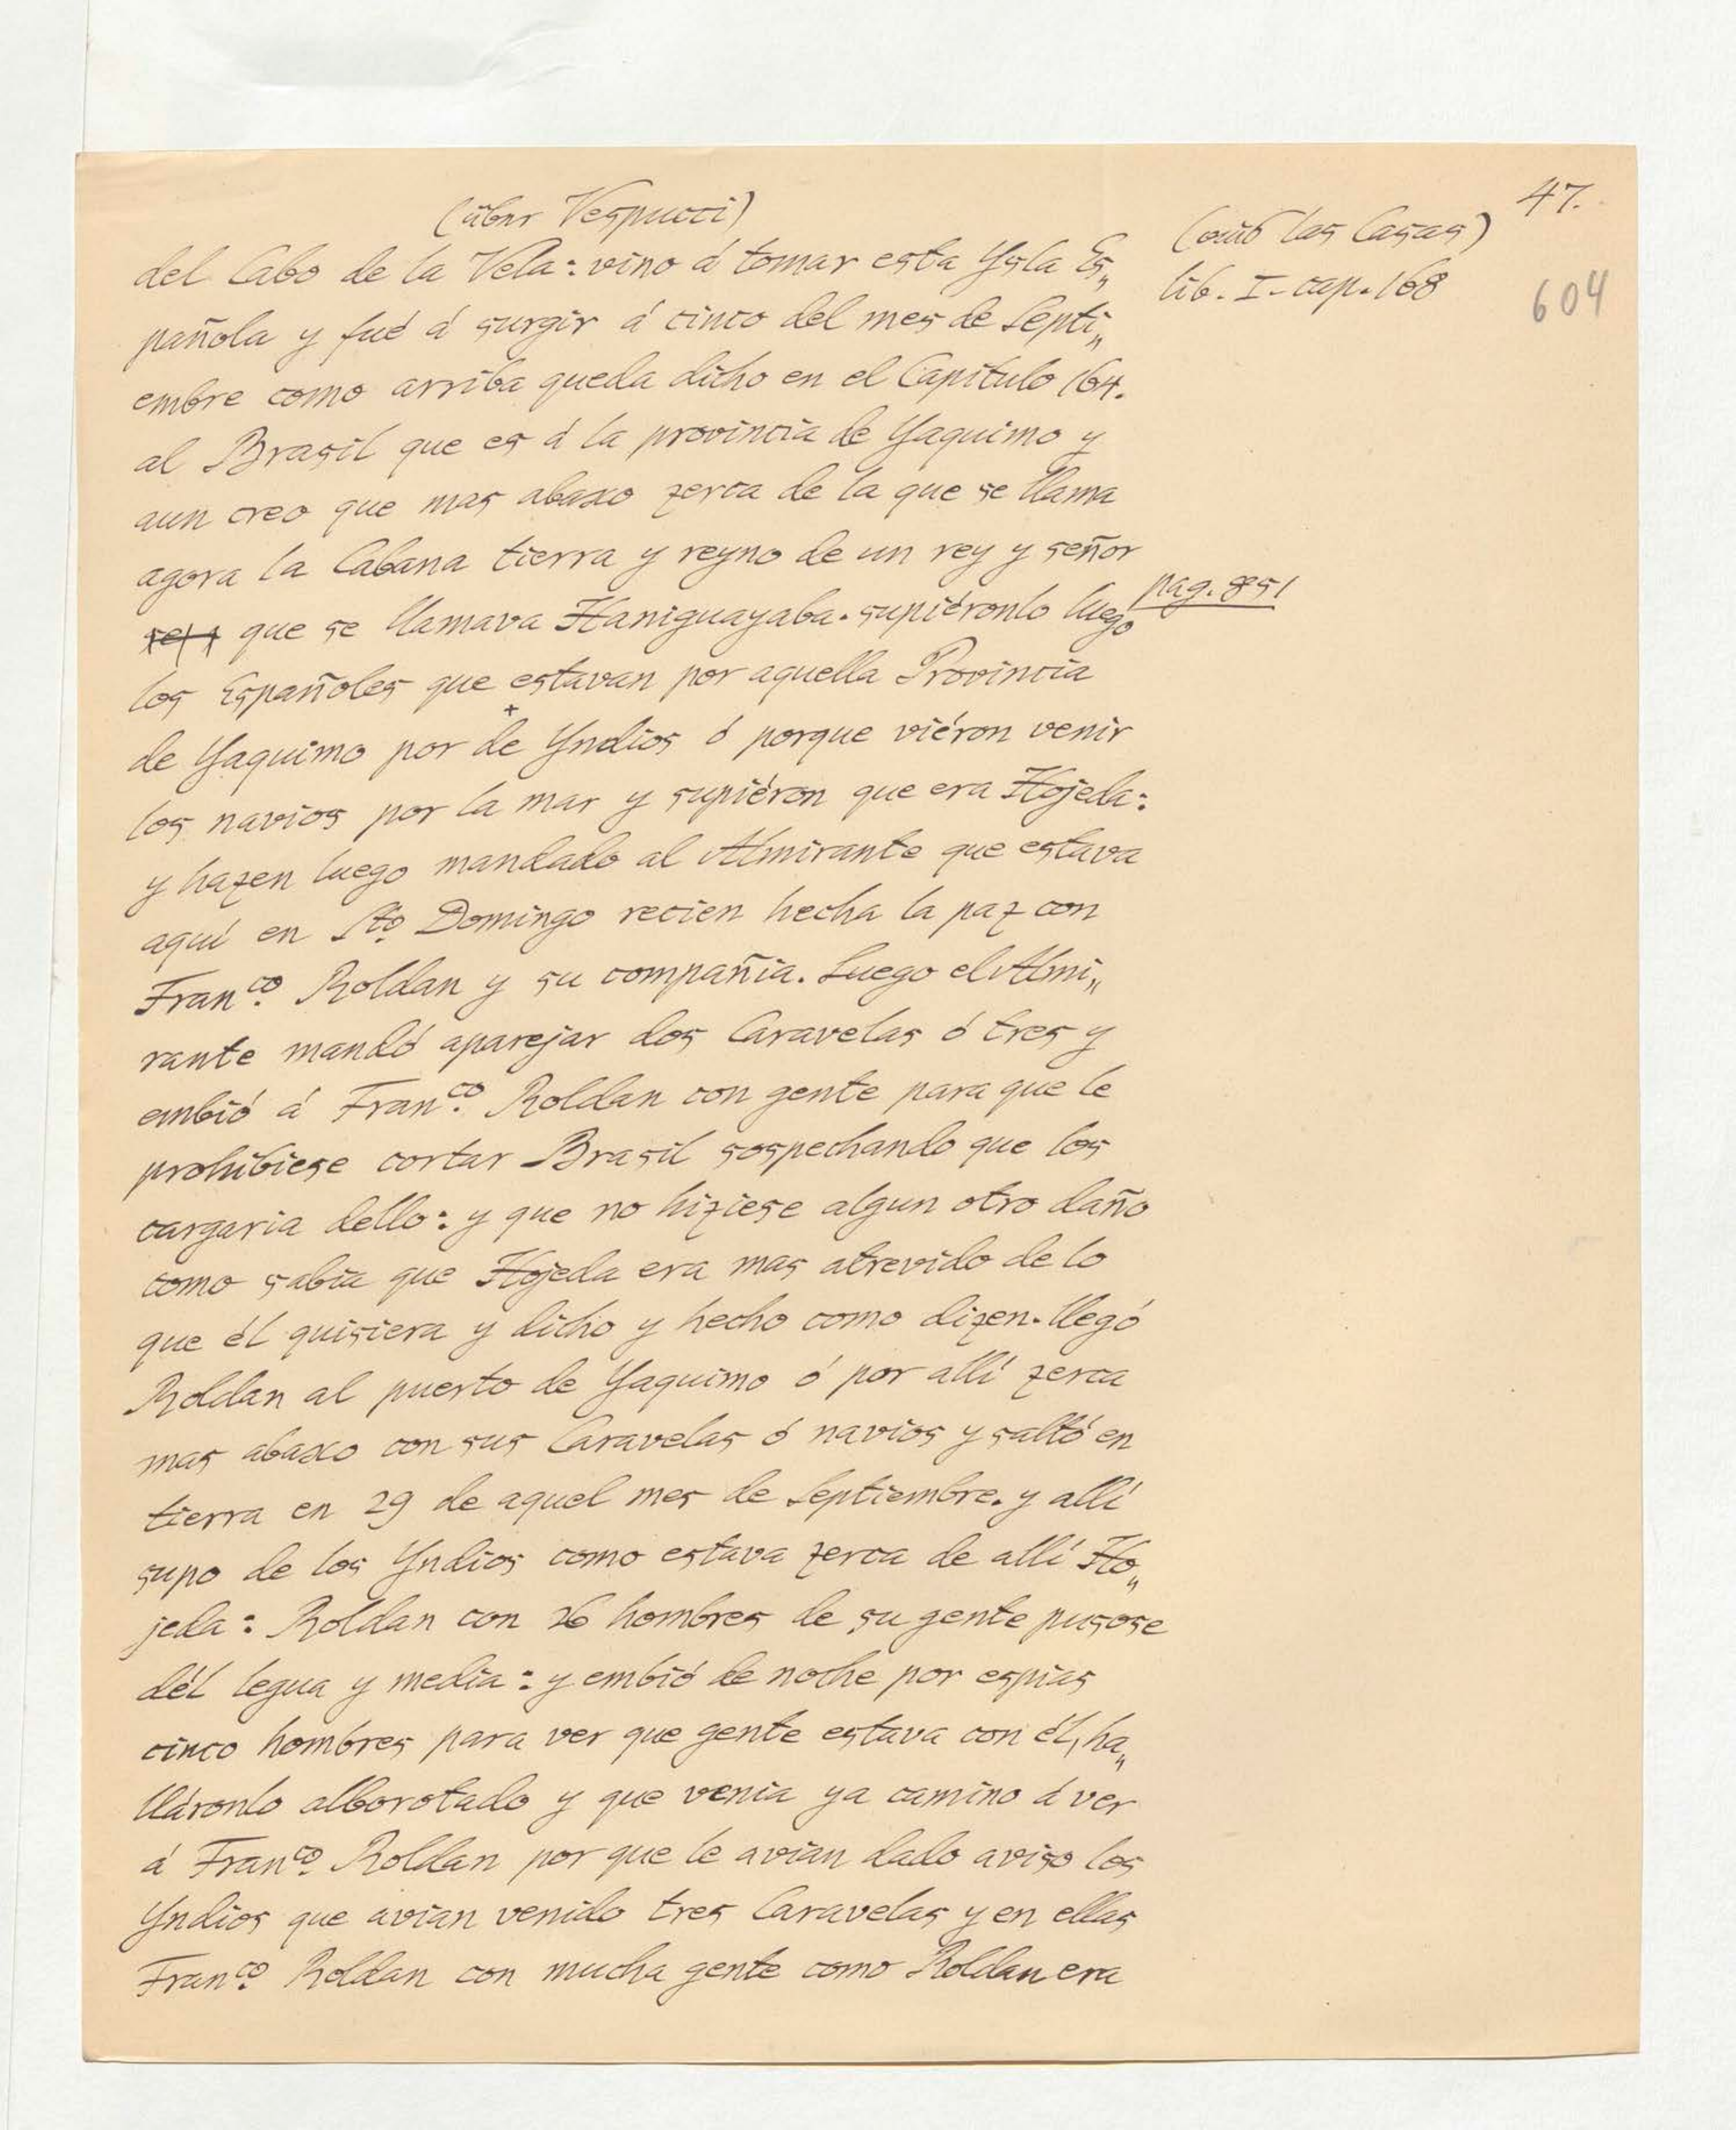 47.
(über Vespucci)
(aus las Casas)
lib. I. cap. 168
604
del Cabo de la Vela: vino á tomar esta Ysla Es„
pañola y fué á surgir á cinco del mes de Septi„
embre como arriba queda dicho en el Capitulo 164.
al Brasil que es á la provincia de Yaquimo y
aun creo que mas abaxo zerca de la que se llama
agora la Cabana tierra y reyno de un rey y señor
que se llamava Haniguayaba. supiéronlo luego
pag. 851
los Españoles que estavan por aquella Provincia
de Yaquimo por de Yndios ó porque viéron venir
los navios por la mar y supiéron que era Hojeda:
y hazen luego mandado al Almirante que estava
aqui en Sto Domingo recien hecha la paz con
Franco. Roldan y su compañia. Luego el Almi„
rante mandó aparejar dos Caravelas ó tres y
embió á Franco. Roldan con gente para que le
prohibiese cortar Brasil sospechando que los
cargaria dello: y que no hiziese algun otro daño
como sabia que Hojeda era mas atrevido de lo
que él quisiera y dicho y hecho como dizen. llegó
Roldan al puerto de Yaquimo ó por allí zerca
mas abaxo con sus Caravelas ó navios y saltó en
tierra en 29 de aquel mes de Septiembre. y allí
supo de los Yndios como estava zerca de allí Ho„
jeda: Roldan con 26 hombres de su gente pusose
dél legua y media: y embió de noche por espias
cinco hombres para ver que gente estava con él, ha„
lláronlo alborotado y que venia ya camino á ver
á Franco. Roldan por que le avian dado aviso los
Yndios que avian venido tres Caravelas y en ellas
Franco. Roldan con mucha gente como Roldan era